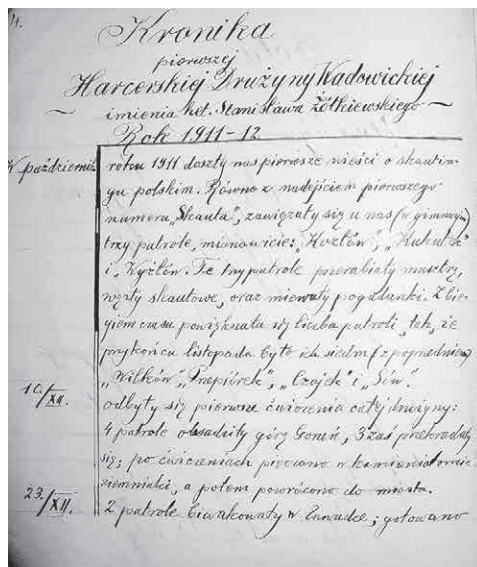 4.
Kronika
pierwszej
Harcerskiej Drużyny Wadowickiej
~ imienia het. Stanisława Żółkiewskiego ~
Rok 1911-12
W październik roku 1911 doszły nas pierwsze wieści o skautin-
gu polskim. Równo z nadejściem pierwszego
numeru „Skauta”, zawiązały się u nas (w gimnazyu)
trzy patrole, mianowicie: „Kozłów”, „Kukułek”
i „Wyżłów”. Te trzy patrole przerabiały musztrę,
węzły skautowe, oraz miewały pogadanki. Z bie-
giem czasu powiększała się liczba patroli, tak, że
przy końcu listopada było ich siedm (z poprzedniemi)
„Wilków”, „Przepiórek”, „Czajek” i „Sów”.
10./XII. odbyły się pierwsze ćwiczenia całej drużyny:
4 patrole obsadziły górę Goniń, 3 zaś przekradały
się; po ćwiczeniach pieczono w kamieniołomie
ziemniaki, a potem powrócono do miasta.
23./XII. 2 patrole biwakowały w Zawadce; gotowano